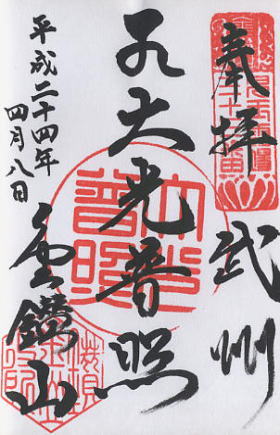 奉拝 武州
大光普照
大光普照
平成二十四年
四月八日
金鑚山